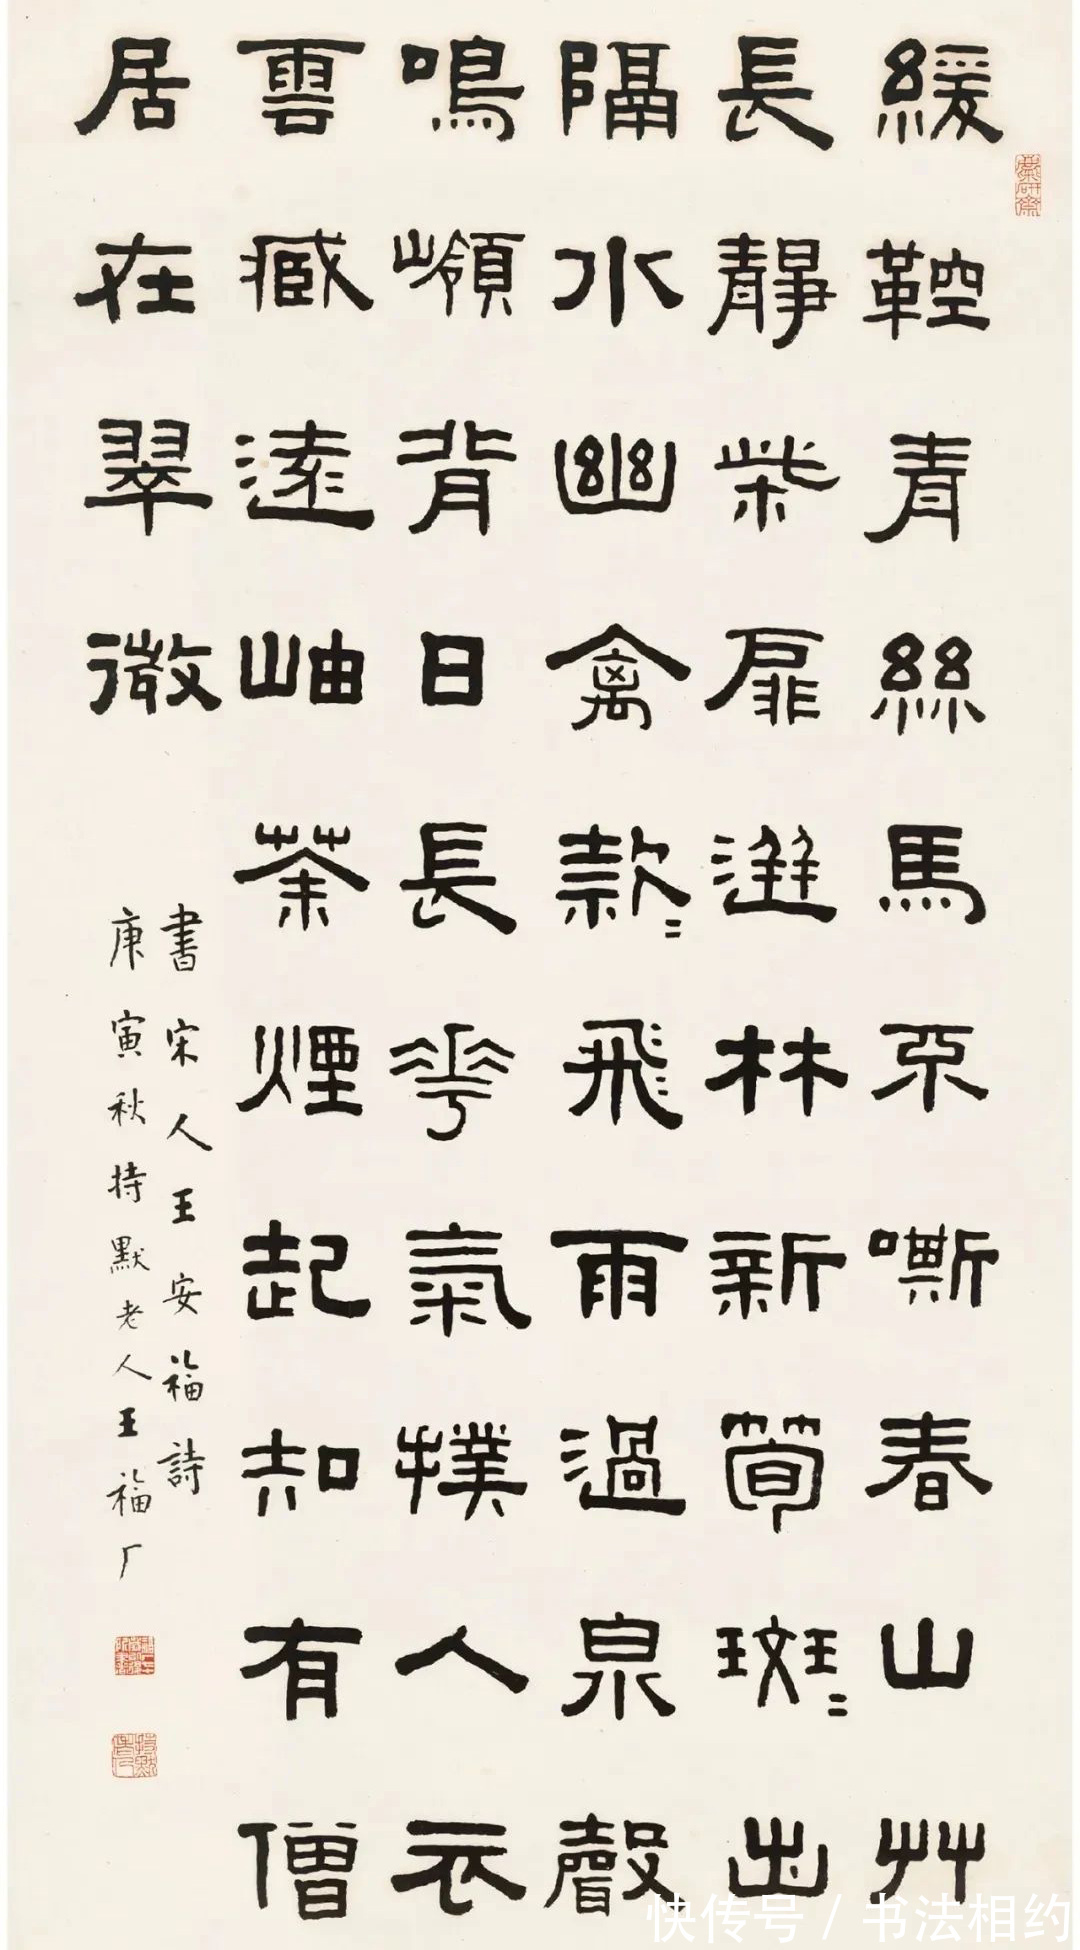 緩鞚青絲馬不嘶春山艸
長靜柴扉遊林新筍斑〻出
隔水幽禽款〻飛雨過泉聲
鳴嶺背日長花氣撲人衣
雲臧遠岫茶煙起知有僧
居在翠微
書宋人王安福詩
庚寅秋持默老人王福厂
快传号/书法相约